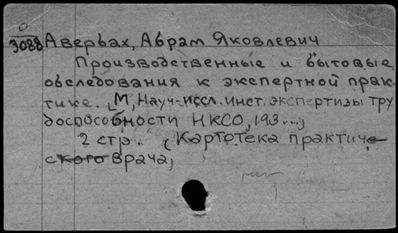 0
3088 Авербах, Абрам Яковлевич
Производственные и бытовые
обследования к экспертной прак-
тике. М, Науч-иссл. инст. экспертизы тру
доспособности НКСО, 193...,
2 стр. (Картотека практиче
ского врача,